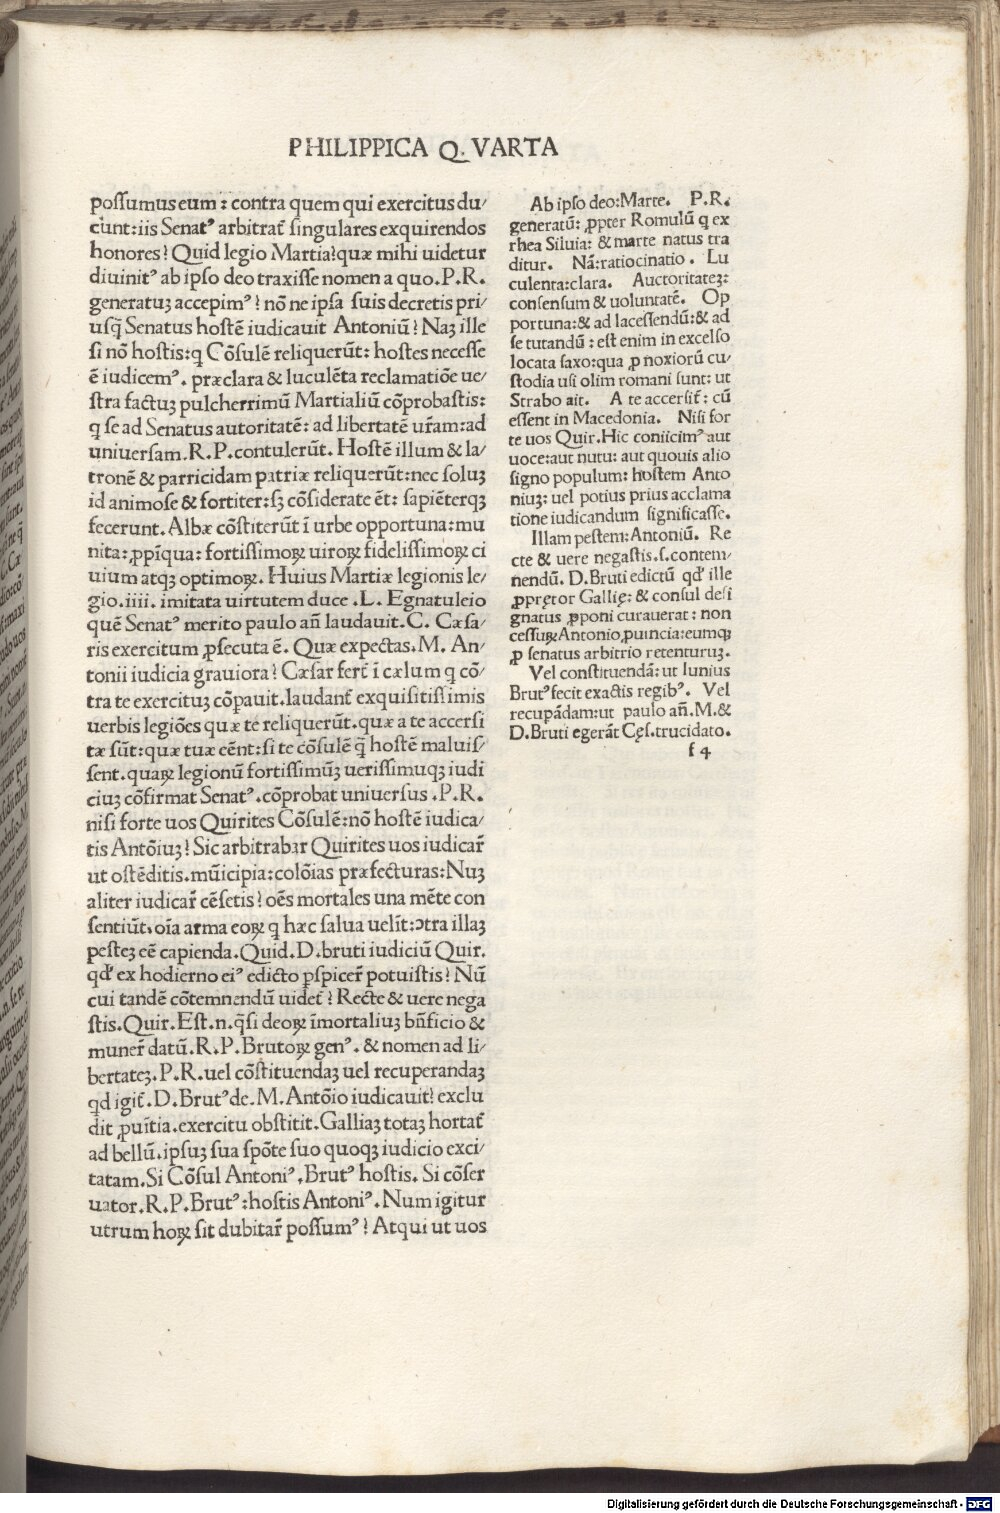 PHILIPPICA Q. VARTA
possumus eum : contra quem qui exercitus du⸗
cūnt:iis Senatꝰ arbitrat᷑ singulares exquirendos
honores? Quid legio Martia?quæ mihi uidetur
diuinitꝰ ab ipso deo traxisse nomen a quo.P.R.
generatuꝫ accepimꝰ? nō ne ipsa suis decretis pri⸗
usq̄ Senatus hostē iudicauit Antoniū? Naꝫ ille
si nō hostis:q Cōsulē reliquerūt: hostes necesse
ē iudicemꝰ. præclara & luculēta reclamatiōe ue⸗
stra factuꝫ pulcherrimū Martialiū cōprobastis:
q se ad Senatus autoritatē: ad libertatē ur̄am:ad
uniuersam.R.P.contulerūt. Hostē illum & la⸗
tronē & parricidam patriæ reliquerūt:nec soluꝫ
id animose & fortiter:sꝫ cōsiderate ēt: sapiēterqꝫ
fecerunt. Albæ cōstiterūt ī urbe opportuna:mu
nita:ꝓpīqua: fortissimoꝝ uiroꝝ fidelissimoꝝ ci
uium atqꝫ optimoꝝ. Huius Martiæ legionis le⸗
gio.iiii. imitata uirtutem duce .L. Egnatuleio
quē Senatꝰ merito paulo an̄ laudauit.C. Cæsa⸗
ris exercitum ꝓsecuta ē. Quæ expectas.M. An⸗
tonii iudicia grauiora? Cæsar fert᷑ ī cælum q cō⸗
tra te exercituꝫ cōpauit.laudant᷑ exquisitissimis
uerbis legiōes quæ te reliquerūt.quæ a te accersi
tæ sūt:quæ tuæ eēnt:si te cōsulē q̄ hostē maluis⸗
sent.quaꝝ legionū fortissimūꝫ uerissimuqꝫ iudi
ciuꝫ cōfirmat Senatꝰ.cōprobat uniuersus .P.R.
nisi forte uos Quirites Cōsulē:nō hostē iudica⸗
tis Antōiuꝫ? Sic arbitrabar Quirites uos iudicar̄
ut ostēditis.mūicipia:colōias præfecturas:Nuꝫ
aliter iudicar̄ cēsetis? oēs mortales una mēte con
sentiūt,oīa arma eoꝝ q hæc salua uelīt:ↄtra illaꝫ
pesteꝫ eē capienda.Quid.D.bruti iudiciū Quir.
qd' ex hodierno eiꝰ edicto ꝑspicer̄ potuistis? Nū
cui tandē cōtemnendū uidet᷑? Recte & uere nega
stis.Quir.Est.n.q̄si deoꝝ īmortaliuꝫ bn̄ficio &
muner̄ datū.R.P.Brutoꝝ genꝰ.& nomen ad li⸗
bertateꝫ.P.R.uel cōstituendaꝫ uel recuperandaꝫ
qd igit᷑.D.Brutꝰ de.M.Antōio iudicauit? exclu
dit ꝓuītia.exercitu obstitit.Galliaꝫ totaꝫ hortat᷑
ad bellū.ipsuꝫ sua spōte suo quoqꝫ iudicio exci⸗
tatam.Si Cōsul Antoniꝰ.Brutꝰ hostis.Si cōser
uator.R.P.Brutꝰ:hostis Antoniꝰ.Num igitur
utrum hoꝝ sit dubitar̄ possumꝰ? Atqui ut uos
Ab ipso deo:Marte. P.R.
generatū: ꝓpter Romulū q ex
rhea Siluia: & marte natus tra
ditur. Nā:ratiocinatio. Lu
culenta:clara. Auctoritateꝫ:
consensum & uoluntatē. Op
portuna:& ad lacessendū:& ad
se tutandū : est enim in excelso
locata saxo:qua ꝓ noxiorū cu⸗
stodia usi olim romani sunt: ut
Strabo ait. A te accersit᷑: cū
essent in Macedonia. Nisi for
te uos Quir.Hic coniicimꝰ aut
uoce:aut nutu: aut quouis alio
signo populum: hostem Anto
niuꝫ: uel potius prius acclama
tione iudicandum significasse.
Illam pestem:Antoniū. Re
cte & uere negastis.s.contem⸗
nendū. D.Bruti edictū qd' ille
ꝓprętor Gallię: & consul desi
gnatus ꝓponi curauerat: non
cessuꝝ Antonio ꝓuincia:eumqꝫ
ꝓ senatus arbitrio retenturuꝫ.
Vel constituendā: ut Iunius
Brutꝰ fecit exactis regibꝰ. Vel
recupādam:ut paulo an̄.M.&
D.Bruti egerāt Cęs.trucidato.
f 4
Digitalisierung gefördert durch die Deutsche Forschungsgemeinschaft - DFG